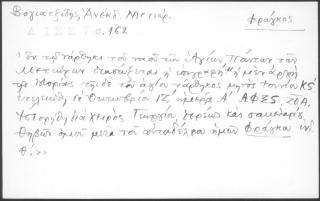 Βογιατζίδης Ἀνέκδ. Μετεώρ. Φράγκος
ΔΙΕΣΤΟ. 162
Ἐν τῷ νάρθηκι τοῦ ναοῦ τῶν Ἁγίων Πάντων τῶν
Μετεώρων διασώζεται ἡ ἐπιγραφὴ "ἡ μὲν ἀρχὴ
τῆς ἱστορίας τοῦδε τοῦ ἁγίου νάρθηκος μηνὸς Ἰουνίου ΚϚ
ἐτελειώθη ἐν Ὀκτωβρίῳ ΙΖ΄ ἡμέρᾳ Α΄ ΑΦΞϚ, ΖΟΔ,
Ἱστορήθη διὰ χειρὸς Γεωργίου ἱερέως καὶ σακελλαρίου
Θηβῶν ὁμοῦ μετὰ τοῦ αὐταδέλφου ἡμῶν Φράγκου ἰνδ.
Θ΄.>>